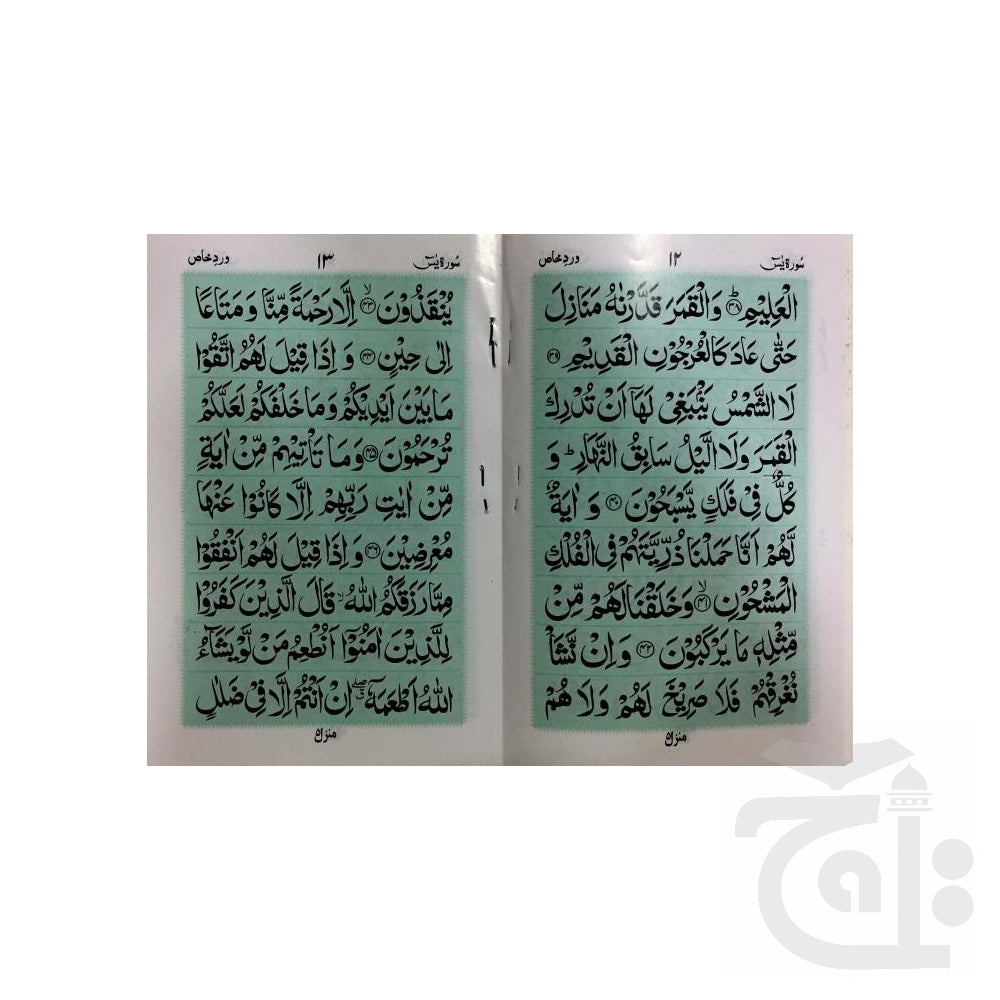 سورۃ یٰسٓ ۱۲ وردِ خاص
الْعَلِیْمِ ﴿۳۸﴾ؕ وَالْقَمَرَ قَدَّرْنٰهُ مَنَازِلَ
حَتّٰی عَادَ كَالْعُرْجُوْنِ الْقَدِیْمِ ﴿۳۹﴾
لَا الشَّمْسُ یَنْۢبَغِیْ لَهَاۤ اَنْ تُدْرِكَ
الْقَمَرَ وَلَا الَّیْلُ سَابِقُ النَّهَارِؕ وَ
كُلٌّ فِیْ فَلَكٍ یَّسْبَحُوْنَ ﴿۴۰﴾ وَ اٰیَةٌ
لَّهُمْ اَنَّا حَمَلْنَا ذُرِّیَّتَهُمْ فِی الْفُلْكِ
الْمَشْحُوْنِ ﴿۴۱﴾ۙ وَخَلَقْنَا لَهُمْ مِّنْ
مِّثْلِهٖ مَا یَرْكَبُوْنَ ﴿۴۲﴾ وَاِنْ نَّشَاْ
نُغْرِقْهُمْ فَلَا صَرِیْخَ لَهُمْ وَلَا هُمْ
منزل ۵
سورۃ یٰسٓ ۱۳ وردِ خاص
یُنْقَذُوْنَ ﴿۴۳﴾ۙ اِلَّا رَحْمَةً مِّنَّا وَ مَتَاعًا
اِلٰی حِیْنٍ ﴿۴۴﴾ وَ اِذَا قِیْلَ لَهُمُ اتَّقُوْا
مَا بَیْنَ اَیْدِیْكُمْ وَ مَا خَلْفَكُمْ لَعَلَّكُمْ
تُرْحَمُوْنَ ﴿۴۵﴾ وَ مَا تَاْتِیْهِمْ مِّنْ اٰیَةٍ
مِّنْ اٰیٰتِ رَبِّهِمْ اِلَّا كَانُوْا عَنْهَا
مُعْرِضِیْنَ ﴿۴۶﴾ وَ اِذَا قِیْلَ لَهُمْ اَنْفِقُوْا
مِمَّا رَزَقَكُمُ اللّٰهُۙ قَالَ الَّذِیْنَ كَفَرُوْا
لِلَّذِیْنَ اٰمَنُوْۤا اَنُطْعِمُ مَنْ لَّوْ یَشَآءُ
اللّٰهُ اَطْعَمَهٗۤ اِنْ اَنْتُمْ اِلَّا فِیْ ضَلٰلٍ
منزل ۵